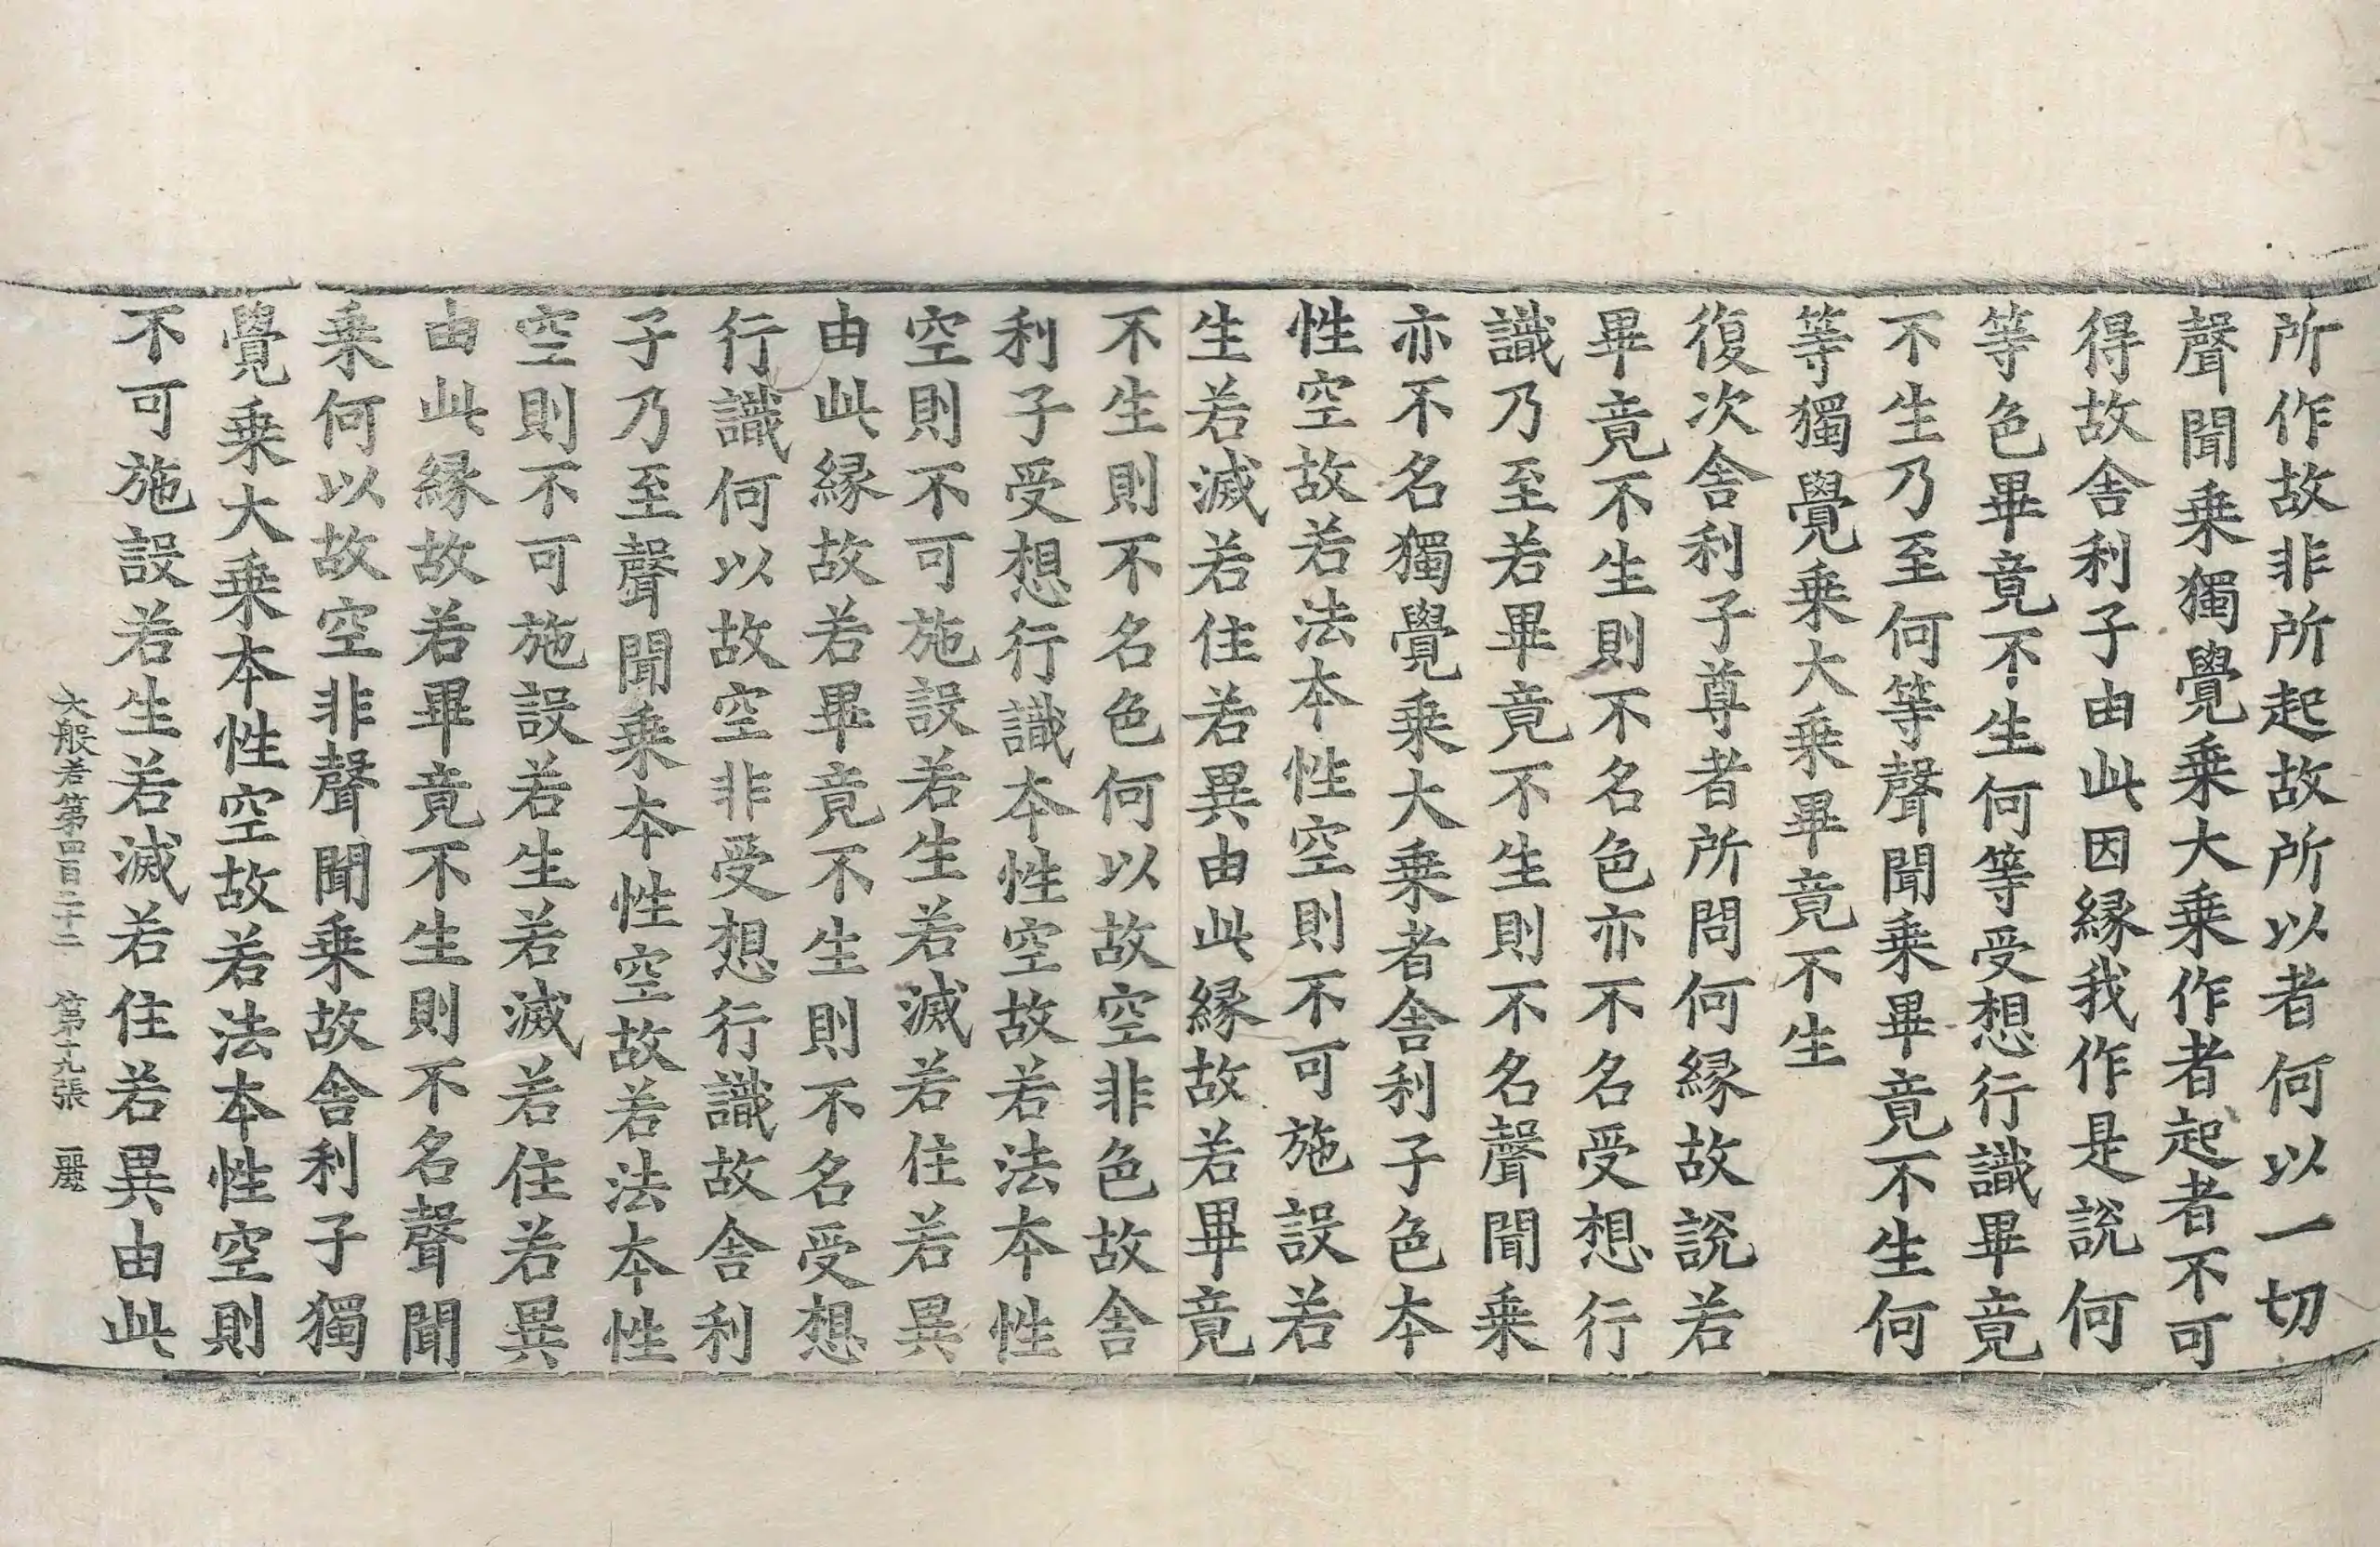 所作故非所起故所以者何以一切
聲聞乗獨覺乗大乗作者起者不可
得故舎利子由此因縁我作是說何
等色畢竟不生何等受想行識畢竟
不生乃至何等聲聞乗畢竟不生何
等獨覺乗大乗畢竟不生
復次舎利子尊者所問何縁故說若
畢竟不生則不名色亦不名受想行
識乃至若畢竟不生則不名聲聞乗
亦不名獨覺乗大乗者舎利子色本
性空故若法本性空則不可施設若
生若滅若住若異由此縁故若畢竟
不生則不名色何以故空非色故舎
利子受想行識本性空故若法本性
空則不可施設若生若滅若住若異
由此縁故若畢竟不生則不名受想
行識何以故空非受想行識故舎利
子乃至聲聞乗本性空故若法本性
空則不可施設若生若滅若住若異
由此縁故若畢竟不生則不名聲聞
乗何以故空非聲聞乗故舎利子獨
覺乗大乗本性空故若法本性空則
不可施設若生若滅若住若異由此
大般若第四百二十二 第十九張 麗